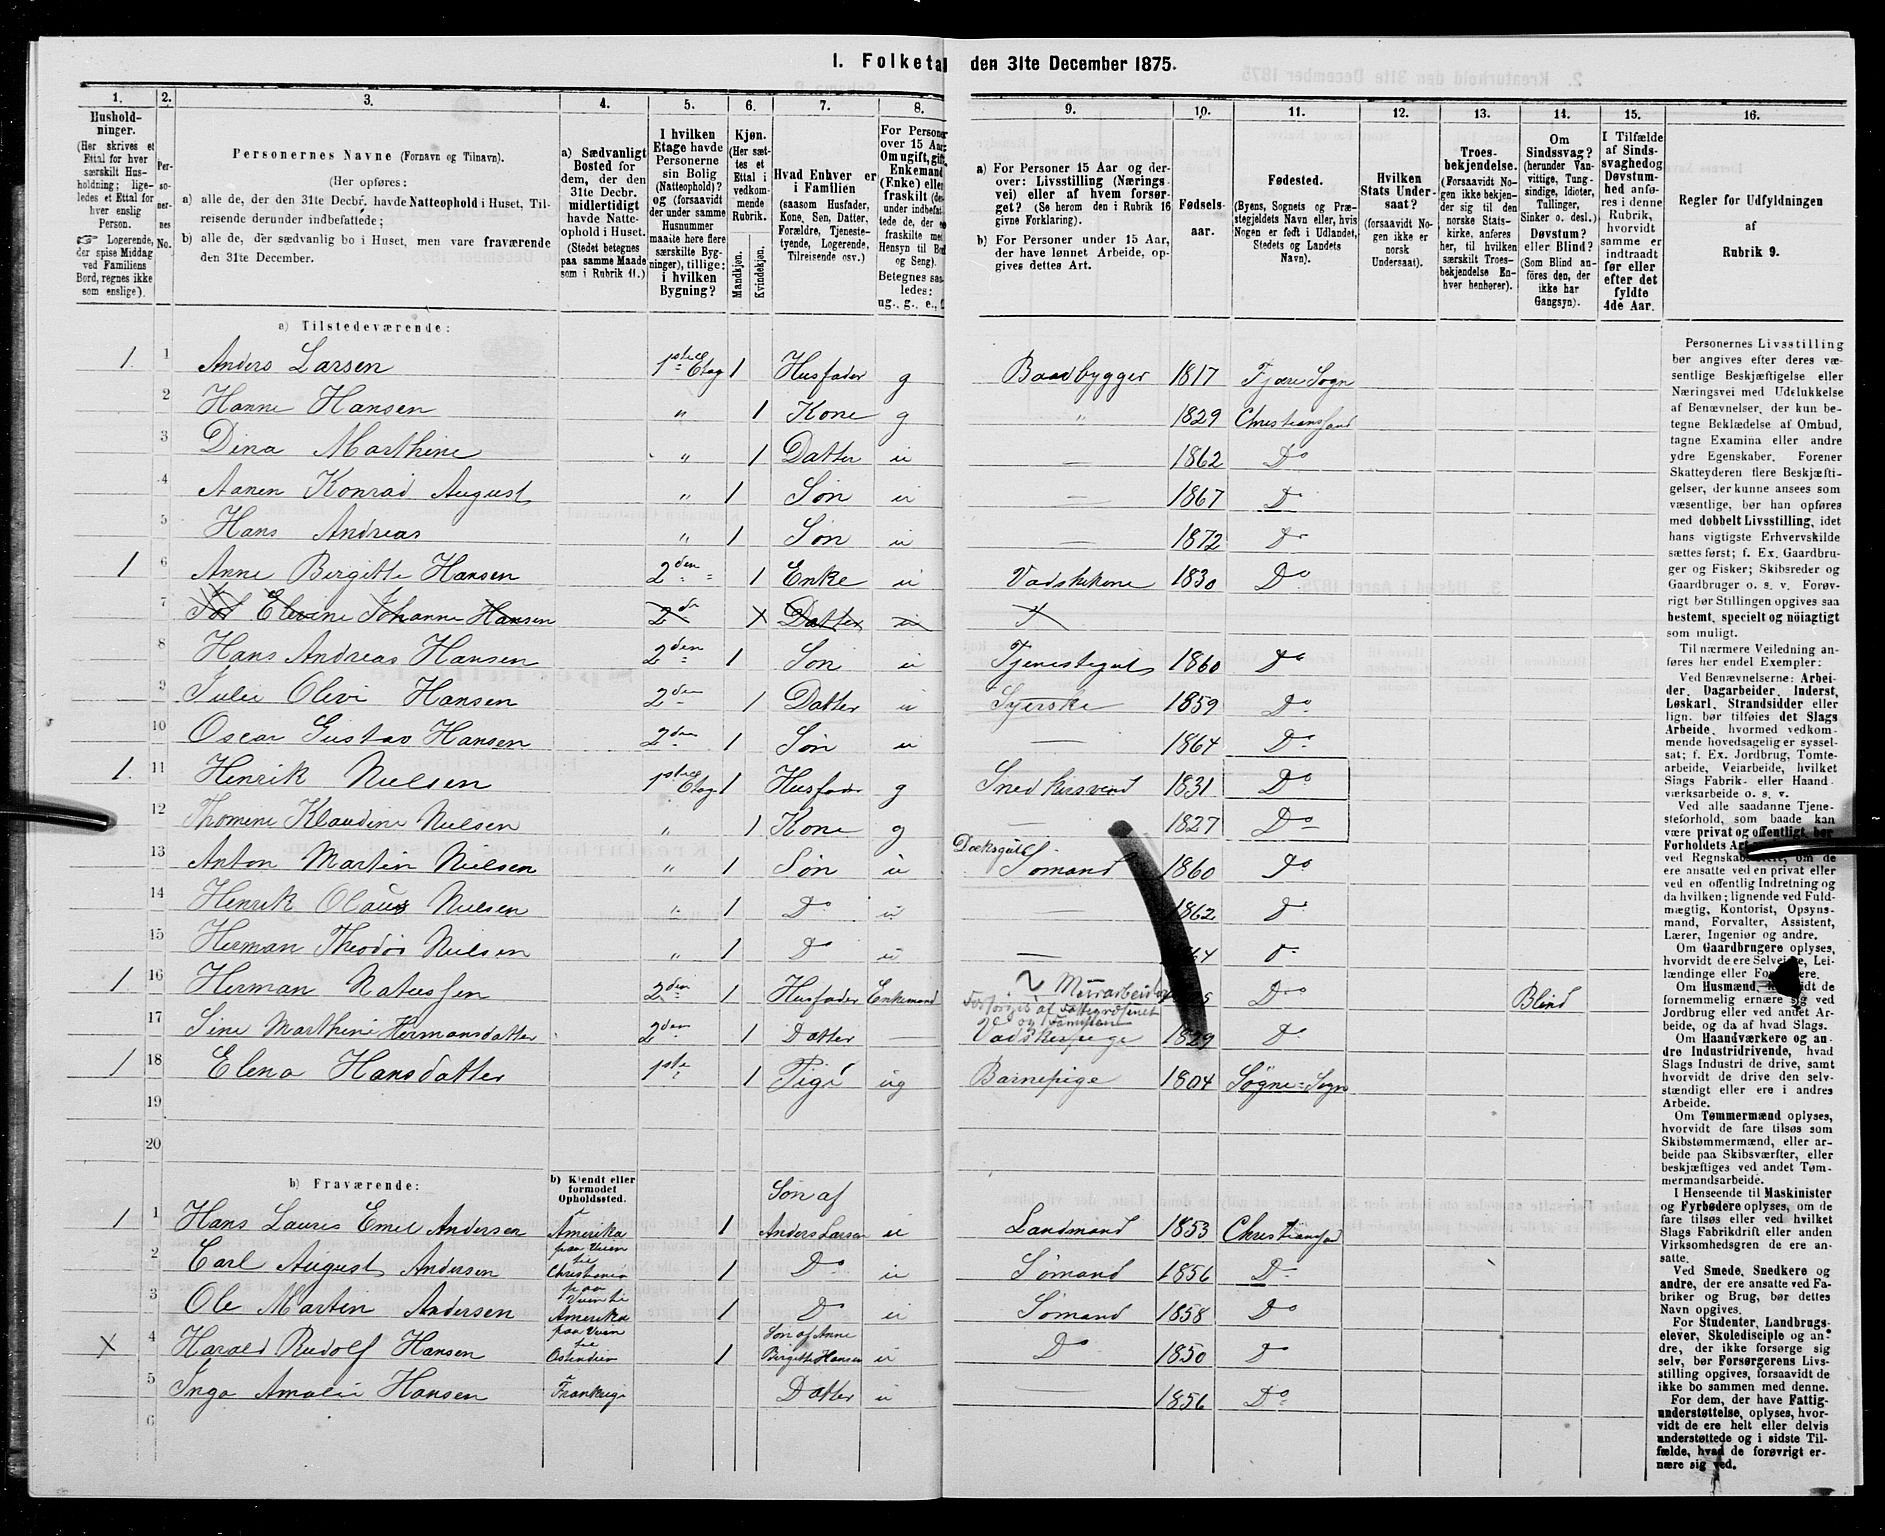 1. Folketal den 31te December 1875.
1. 2. 3. 4. 5. 6. 7. 8. 9. 10. 11. 12. 13. 14. 15. 16.
Hushold-
ninger.
(Her skrives et
Ettal for hver
særskilt Hus-
holdning; lige-
ledes et Ettal for
hver enslig
Person.
☞ Logerende,
der spise Middag
ved Familiens
Bord, regnes ikke
som enslige).
Per-
so-
ner-
nes
No.
Personernes Navne (Fornavn og Tilnavn).
(Her opføres:
a) alle de, der den 31te Decbr. havde Natteophold i Huset, Til-
reisende derunder indbefattede;
b) alle de, der sædvanlig bo i Huset, men vare fraværende
den 31te December.
a) Sædvanligt
Bosted for
dem, der den
31te Decbr.
midlertidigt
havde Natte-
ophold i Huset.
(Stedet betegnes
paa samme Maade
som i Rubrik 11.)
I hvilken
Etage havde
Personerne
sin Bolig
(Natteophold)?
og (forsaavidt
der under samme
Husnummer
maatte høre flere
særskilte Byg-
ninger), tillige:
i hvilken
Bygning?
Kjøn.
(Her sæt-
tes et
Ettal i
vedkom-
mende
Rubrik.
Mandkjøn.
Kvindekjøn.
Hvad Enhver er
i Familien
(saasom Husfader,
Kone, Søn, Datter,
Forældre, Tjeneste-
tyende, Logerende,
Tilreisende osv.)
For Personer
over 15 Aar:
Om ugift, gift,
Enkemand
(Enke) eller
fraskilt
Betegnes saa-
ledes:
ug., g., e.,
a) For Personer 15 Aar og der-
over: Livsstilling (Nærings-
vei) eller af hvem forsør-
get? (Se herom den i Rubrik 16
givne Forklaring).
b) For Personer under 15 Aar,
der have lønnet Arbeide, op-
gives dettes Art.
Fødsels-
aar.
Fødested.
(Byens, Sognets og Præ-
stegjeldets Navn eller, hvis
Nogen er født i Udlandet,
Stedets og Landets
Navn).
Hvilken
Stats Under-
saat?
(forsaavidt No-
gen ikke er
norsk
Undersaat).
Troes-
bekjendelse.
(Forsaavidt No-
gen ikke bekjen-
der sig til den
norske Stats-
kirke, anføres
her, til hvilken
særskilt Troes-
bekjendelse En-
hver henhører).
Om
Sindssvag?
(herunder Van-
vittige, Tung-
sindige, Idioter,
Tullinger,
Sinker o. desl.)
Døvstum?
eller Blind?
(Som Blind an-
føres den, der
ikke har
Gangsyn).
I Tilfælde
af Sinds-
svaghed og
Døvstum-
hed anfø-
res i denne
Rubrik,
hvorvidt
samme er
indtraadt
før eller
efter det
fyldte
4de Aar.
Regler for Udfyldningen
af
Rubrik 9.
a) Tilstedeværende:
1 1 Anders Larsen 1ste Etag 1 Husfader g Baadbygger 1817 Sogn
2 Hanne Hansen " 1 Kone g " 1829 Christianssand
3 Dina Marthine " 1 Datter u — 1862 Do
4 Aanen Konrad August " 1 Søn u — 1867 Do
5 Hans Andreas " 1 Søn u — 1872 Do
1 6 Anne Birgitte Hansen 2den 1 Enke u Vadskekone 1830 Do
7 Elevine Johanne Hansen 2d Datter u
8 Hans Andreas Hansen 2den 1 Søn u Tjenestegut 1860 Do
9 Julie Olivi Hansen 2den 1 Datter u Syerske 1859 Do
10 Oscar Gustav Hansen 2den 1 Søn u — 1864 Do
1. 11 Henrik Nielsen 1ste Etag 1 Husfader g Snedkersvend 1831 Do
12 Thomine Klaudine Nielsen " 1 Kone g — 1827 Do
13 Anton Martin Nielsen " 1 Søn u Dæksgut Sømand 1860 Do
14 Henrik Olaus Nielsen " 1 Do u — 1862 Do
15 Herman Theodor Nielsen " 1 Do u — Do
1 16 Herman 2den 1 Husfader Enkemand Murarbeider Do Blind
Forsørges af Fattigvæsenet og Familien
17 Sine Marthine Hermansdatter 2den 1 Datter — Vadskepige 1829 Do
1 18 Elena Hansdatter 1ste 1 Pige ug Barnepige 1804 Søgne Sogn
19
20
b) Fraværende:
b) Kjendt eller
formodet
Opholdssted.
1 1 Hans Laures Emil Andersen Amerika 1 Søn af Anders Larsen u Landmand 1853 Christianssand
2 Carl August Andersen paa Veien til Christiania 1 Do u Sømand 1856 Do
3 Ole Martin Andersen paa Veien til Amerika 1 Do u Sømand 1858 Do
X 4 Harald Rudolf Hansen paa Veien til Ostindien 1 Søn af Anne Birgitte Hansen u Do 1850 Do
5 Inga Amalie Hansen Frankrige Datter u — 1856 Do
6
Personernes Livsstilling
bør angives efter deres væ-
sentlige Beskjæftigelse eller
Næringsvei med Udelukkelse
af Benævnelser, der kun be-
tegne Beklædelse af Ombud,
tagne Examina eller andre
ydre Egenskaber. Forener
Skatteyderen flere Beskjæfti-
gelser, der kunne ansees som
væsentlige, bør han opføres
med dobbelt Livsstilling, idet
hans vigtigste Erhvervskilde
sættes først; f. Ex. Gaardbru-
ger og Fisker; Skibsreder og
Gaardbruger o. s. v. Forøv-
rigt bør Stillingen opgives saa
bestemt, specielt og nöiagtigt
som muligt.
Til nærmere Veiledning an-
føres her endel Exempler:
Ved Benævnelserne: Arbei-
der, Dagarbeider, Inderst,
Løskarl, Strandsidder eller
lign. bør tilføies det Slags
Arbeide, hvormed vedkom-
mende hovedsagelig er syssel-
sat; f. Ex. Jordbrug, Tomte-
arbeide, Veiarbeide, hvilket
Slags Fabrik- eller Haand
værksarbeide o. s. v.
Ved alle saadanne Tjene-
steforhold, som baade kan
være privat og offentligt, bør
Forholdets Art
ved om de
ere ansatte ved en privat eller
ved en offentlig Indretning og
da hvilken; lignende ved Fuld-
mægtig, Kontorist, Opsyns-
mand, Forvalter, Assistent,
Lærer, Ingeniør og andre.
Om Gaardbrugere oplyses,
hvorvidt de ere Selveiere, Lei-
lændinge eller
Om Husmænd, hvorvidt de
fornemmelig ernære sig ved
Jordbrug eller ved andet Ar-
beide, og da af hvad Slags.
Om Haandværkere og an-
dre Industridrivende, hvad
Slags Industri de drive, samt
hvorvidt de drive den selv-
stændigt eller ere i andres
Arbeide.
Om Tømmermænd oplyses,
hvorvidt de fare tilsøs som
Skibstømmermænd, eller ar-
beide paa Skibsværfter, eller
beskjæftiges ved andet Tøm-
mermandsarbeide.
I Henseende til Maskinister
og Fyrbødere oplyses, om de
fare tilsøs eller ved hvilket
Slags Fabrikdrift eller anden
Virksomhedsgren de ere an-
satte.
Ved Smede, Snedkere og
andre, der ere ansatte ved Fa-
briker og Brug, bør dettes
Navn opgives.
For Studenter, Landbrugs-
elever, Skoledisciple og an-
dre, der ikke forsørge sig
selv, bør Forsørgerens Livs-
stilling opgives, forsaavidt de
ikke bo sammen med denne.
For dem, der have Fattig-
understøttelse, oplyses, hvor-
vidt de ere helt eller delvis
understøttede og i sidste Til-
fælde, hvad de forøvrigt er-
nære sig ved.